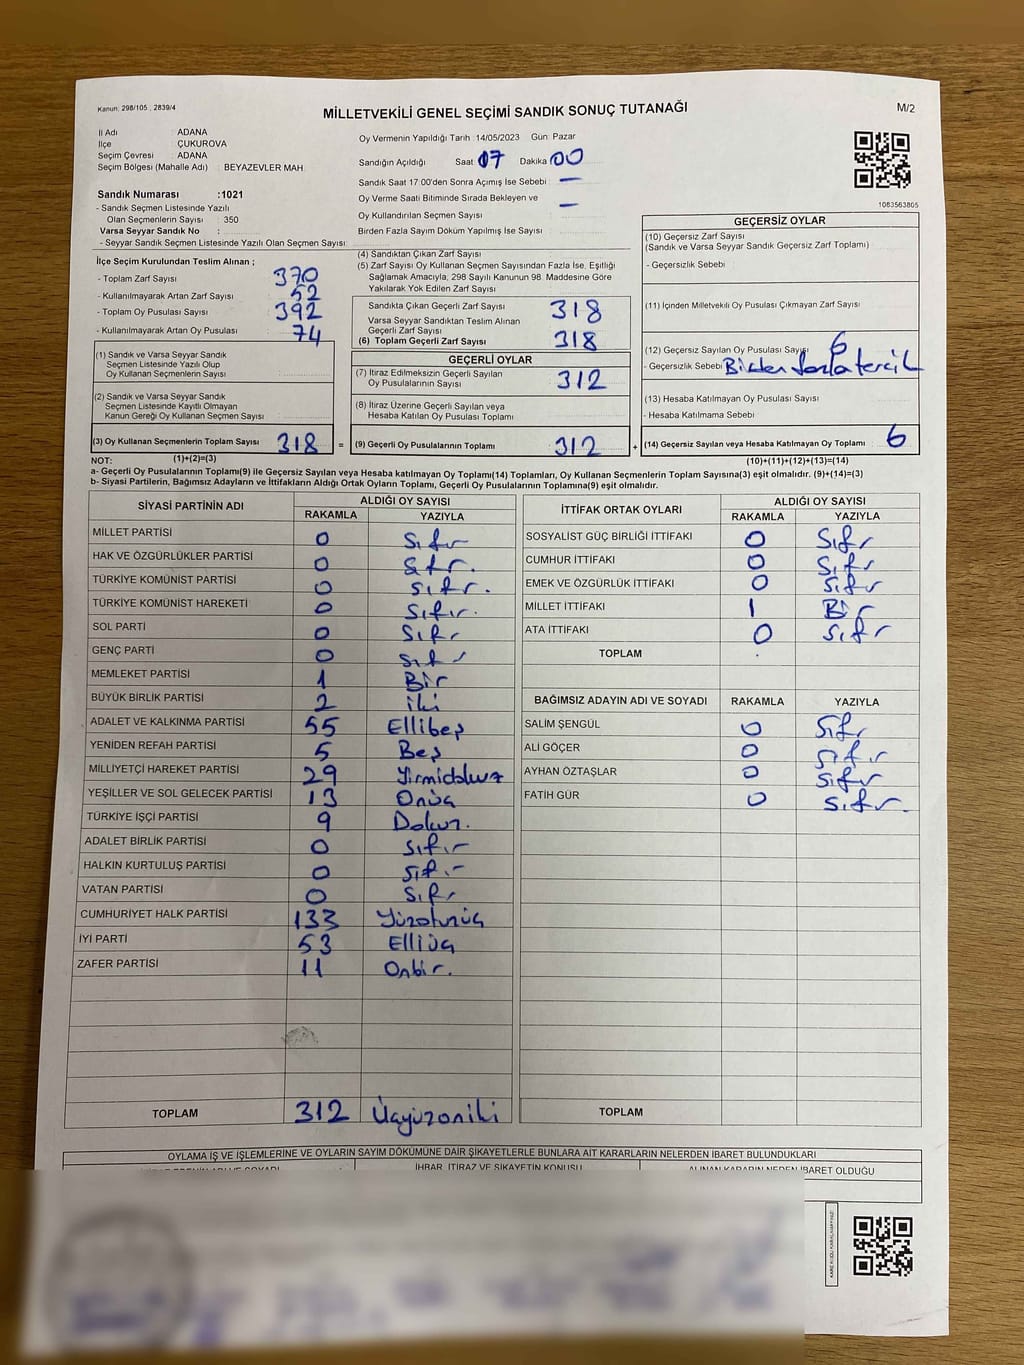 Kanun: 298/105 , 2839/4
MİLLETVEKİLİ GENEL SEÇİMİ SANDIK SONUÇ TUTANAĞI
M/2
İl Adı : ADANA
İlçe : ÇUKUROVA
Seçim Çevresi : ADANA
Seçim Bölgesi (Mahalle Adı) : BEYAZEVLER MAH.
Sandık Numarası :1021
- Sandık Seçmen Listesinde Yazılı
Olan Seçmenlerin Sayısı : 350
Varsa Seyyar Sandık No :
- Seyyar Sandık Seçmen Listesinde Yazılı Olan Seçmen Sayısı:
Oy Vermenin Yapıldığı Tarih :14/05/2023 Gün: Pazar
Sandığın Açıldığı Saat: 07 Dakika: 00
Sandık Saat 17:00'den Sonra Açımış İse Sebebi : —
Oy Verme Saati Bitiminde Sırada Bekleyen ve —
Oy Kullandırılan Seçmen Sayısı :
Birden Fazla Sayım Döküm Yapılmış İse Sayısı :
1083563805
İlçe Seçim Kurulundan Teslim Alınan ;
- Toplam Zarf Sayısı : 370
- Kullanılmayarak Artan Zarf Sayısı : 52
- Toplam Oy Pusulası Sayısı : 392
- Kullanılmayarak Artan Oy Pusulası : 74
(1) Sandık ve Varsa Seyyar Sandık
Seçmen Listesinde Yazılı Olup
Oy Kullanan Seçmenlerin Sayısı :
(2) Sandık ve Varsa Seyyar Sandık
Seçmen Listesinde Kayıtlı Olmayan
Kanun Gereği Oy Kullanan Seçmen Sayısı :
(3) Oy Kullanan Seçmenlerin Toplam Sayısı : 318 =
(1)+(2)=(3)
(4) Sandıktan Çıkan Zarf Sayısı :
(5) Zarf Sayısı Oy Kullanan Seçmen Sayısından Fazla İse, Eşitliği
Sağlamak Amacıyla, 298 Sayılı Kanunun 98. Maddesine Göre
Yakılarak Yok Edilen Zarf Sayısı :
Sandıkta Çıkan Geçerli Zarf Sayısı : 318
Varsa Seyyar Sandıktan Teslim Alınan
Geçerli Zarf Sayısı :
(6) Toplam Geçerli Zarf Sayısı : 318
GEÇERLİ OYLAR
(7) İtiraz Edilmeksizin Geçerli Sayılan
Oy Pusulalarının Sayısı : 312
(8) İtiraz Üzerine Geçerli Sayılan veya
Hesaba Katılan Oy Pusulası Toplamı :
(9) Geçerli Oy Pusulalarının Toplamı : 312 +
GEÇERSİZ OYLAR
(10) Geçersiz Zarf Sayısı :
(Sandık ve Varsa Seyyar Sandık Geçersiz Zarf Toplamı)
- Geçersizlik Sebebi :
(11) İçinden Milletvekili Oy Pusulası Çıkmayan Zarf Sayısı :
(12) Geçersiz Sayılan Oy Pusulası Sayısı : 6
- Geçersizlik Sebebi : Birden fazla tercih
(13) Hesaba Katılmayan Oy Pusulası Sayısı :
- Hesaba Katılmama Sebebi :
(14) Geçersiz Sayılan veya Hesaba Katılmayan Oy Toplamı : 6
(10)+(11)+(12)+(13)=(14)
NOT:
a- Geçerli Oy Pusulalarının Toplamı(9) ile Geçersiz Sayılan veya Hesaba katılmayan Oy Toplamı(14) Toplamları, Oy Kullanan Seçmenlerin Toplam Sayısına(3) eşit olmalıdır. (9)+(14)=(3)
b- Siyasi Partilerin, Bağımsız Adayların ve İttifakların Aldığı Ortak Oyların Toplamı, Geçerli Oy Pusulalarının Toplamına(9) eşit olmalıdır.
SİYASİ PARTİNİN ADI ALDIĞI OY SAYISI
RAKAMLA YAZIYLA
MİLLET PARTİSİ 0 Sıfır
HAK VE ÖZGÜRLÜKLER PARTİSİ 0 Sıfır.
TÜRKİYE KOMÜNİST PARTİSİ 0 Sıfır.
TÜRKİYE KOMÜNİST HAREKETİ 0 Sıfır.
SOL PARTİ 0 Sıfır
GENÇ PARTİ 0 Sıfır
MEMLEKET PARTİSİ 1 Bir
BÜYÜK BİRLİK PARTİSİ 2 iki
ADALET VE KALKINMA PARTİSİ 55 Ellibeş
YENİDEN REFAH PARTİSİ 5 Beş
MİLLİYETÇİ HAREKET PARTİSİ 29 Yirmidokuz
YEŞİLLER VE SOL GELECEK PARTİSİ 13 Onüç
TÜRKİYE İŞÇİ PARTİSİ 9 Dokuz.
ADALET BİRLİK PARTİSİ 0 Sıfır
HALKIN KURTULUŞ PARTİSİ 0 Sıfır
VATAN PARTİSİ 0 Sıfır
CUMHURİYET HALK PARTİSİ 133 Yüzotuzüç
İYİ PARTİ 53 Elliüç
ZAFER PARTİSİ 11 Onbir.
TOPLAM 312 Üçyüzoniki
İTTİFAK ORTAK OYLARI ALDIĞI OY SAYISI
RAKAMLA YAZIYLA
SOSYALİST GÜÇ BİRLİĞİ İTTİFAKI 0 Sıfır
CUMHUR İTTİFAKI 0 Sıfır
EMEK VE ÖZGÜRLÜK İTTİFAKI 0 Sıfır
MİLLET İTTİFAKI 1 Bir
ATA İTTİFAKI 0 Sıfır
TOPLAM
BAĞIMSIZ ADAYIN ADI VE SOYADI RAKAMLA YAZIYLA
SALİM ŞENGÜL 0 Sıfır
ALİ GÖÇER 0 Sıfır
AYHAN ÖZTAŞLAR 0 Sıfır
FATİH GÜR 0 Sıfır.
TOPLAM
OYLAMA İŞ VE İŞLEMLERİNE VE OYLARIN SAYIM DÖKÜMÜNE DAİR ŞİKAYETLERLE BUNLARA AİT KARARLARIN NELERDEN İBARET BULUNDUKLARI
İHBAR, İTİRAZ VE ŞİKAYETİN KONUSU ALINAN KARARIN NEDEN İBARET OLDUĞU